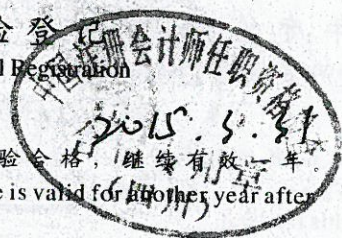 验登记
l Registration
中国注册会计师任职资格
2015.3.31
验合格,继续有效一年
e is valid for another year after